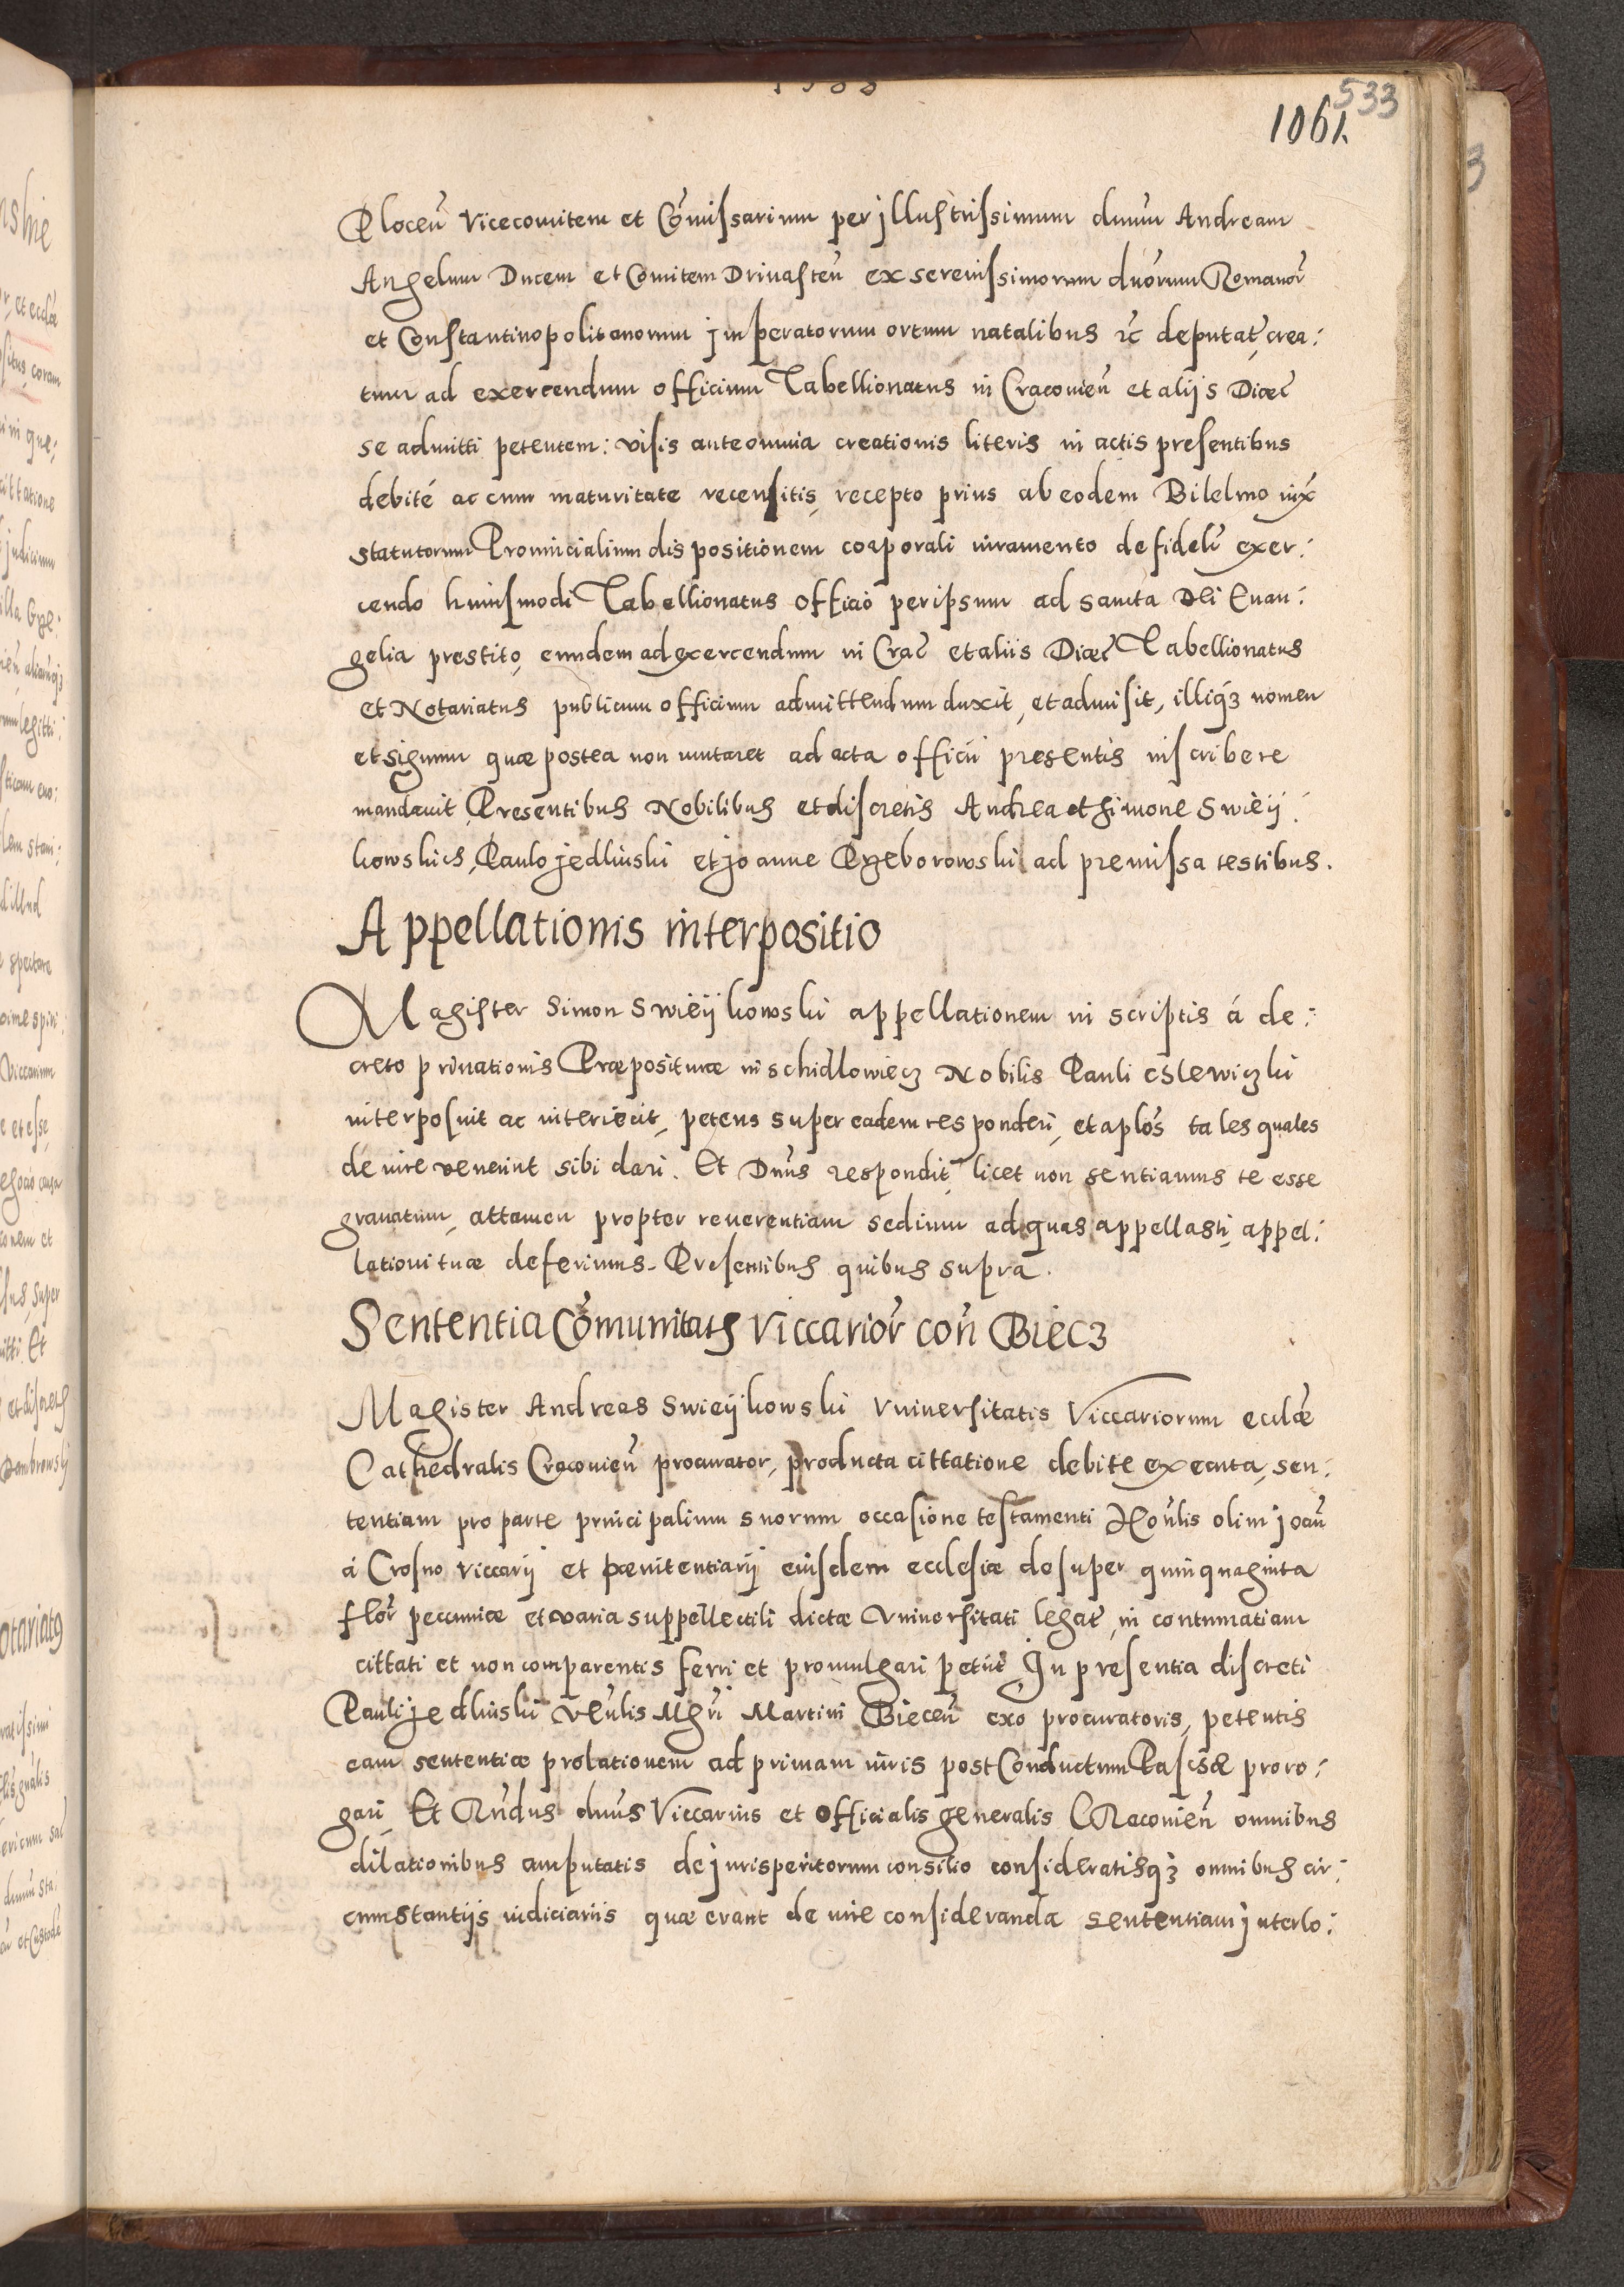 533
1061
Ploceń vicecomitem et Cōmissarium per jllustrissimum dnūm Andream
Angelum Ducem et Comitem Drinasteń ex serenissimorum dnōrum Romanor̄
et Constantinopolitanorum jmperatorum ortum natalibus deputat̄, crea:
tum ad exercendum officium Tabellionatus in Cracovień et alijs Dioec̄
se admitti petentem: visis ante omnia creationis literis in actis presentibus
debité ac cum maturitate recensitis, recepto prius ab eodem Bilelmo iux̄
statutorum Provincialium dispositionem corporali iuramento de fideli exer:
cendo huiusmodi Tabellionatus officio per ipsum ad sancta Dei Euan:
gelia prestito, eundem ad exercendum in Crac̄ et aliis Dioec̄ Tabellionatus
et Notariatus publicum officium admittendum duxit, et admisit, illiqз nomen
et signum quæ postea non mutaret ad acta officii presentis inscribere
mandavit, Presentibus Nobilibus et discretis Andrea et Simone Swieÿ:
kowskich, Paulo jedlinski et joanne Pgeborowski ad premissa testibus.
Appellationis interpositio
Magister Simon Swieÿkowski appellationem in scriptis á de:
creto privationis Præpositurae in schidlowiecz Nobilis Pauli
interposuit ac interiecit, petens super eadem responderi, et aplos tales quales
de iure venerint sibi dari. Et Dnūs respondit, licet non sentiamus te esse
gravatum, attamen propter reverentiam sedium ad quas appellasti, appel:
lationi tuæ deferimus. Presentibus quibus supra.
Sententia Cōmunitatis viccarior̄ coń Biecz
Magister Andreas Swieÿkowski Vniversitatis Viccariorum eccl̄æ
Cathedralis Cracovień procurator, producta cittatione debite executa, sen:
tentiam pro parte principalium suorum occasione testamenti Hoń̄lis olim joań
á Crosno viccarij et pœnitentiarij eiusdem ecclesiæ desuper quinquaginta
flor̄ pecuniæ et varia suppellectili dictæ Vniversitati legat̄, in contumatiam
cittati et non comparentis ferri et promulgari petiit, Jn presentia discreti
Pauli jedlinski Veń̄lis Mgr̄i Martini Biecen̄ exo procuratoris, petentis
eam sententiæ prolationem ad primam iuris post Conductum Paschæ proro:
gari, Et Rńdus dnūs Viccarius et Officialis generalis CRacovień omnibus
dilationibus amputatis de jurisperitorum consilio consideratisqз omnibus cir:
cumstantijs iudiciariis quæ erant de iure consideranda sententiam jnterlo: